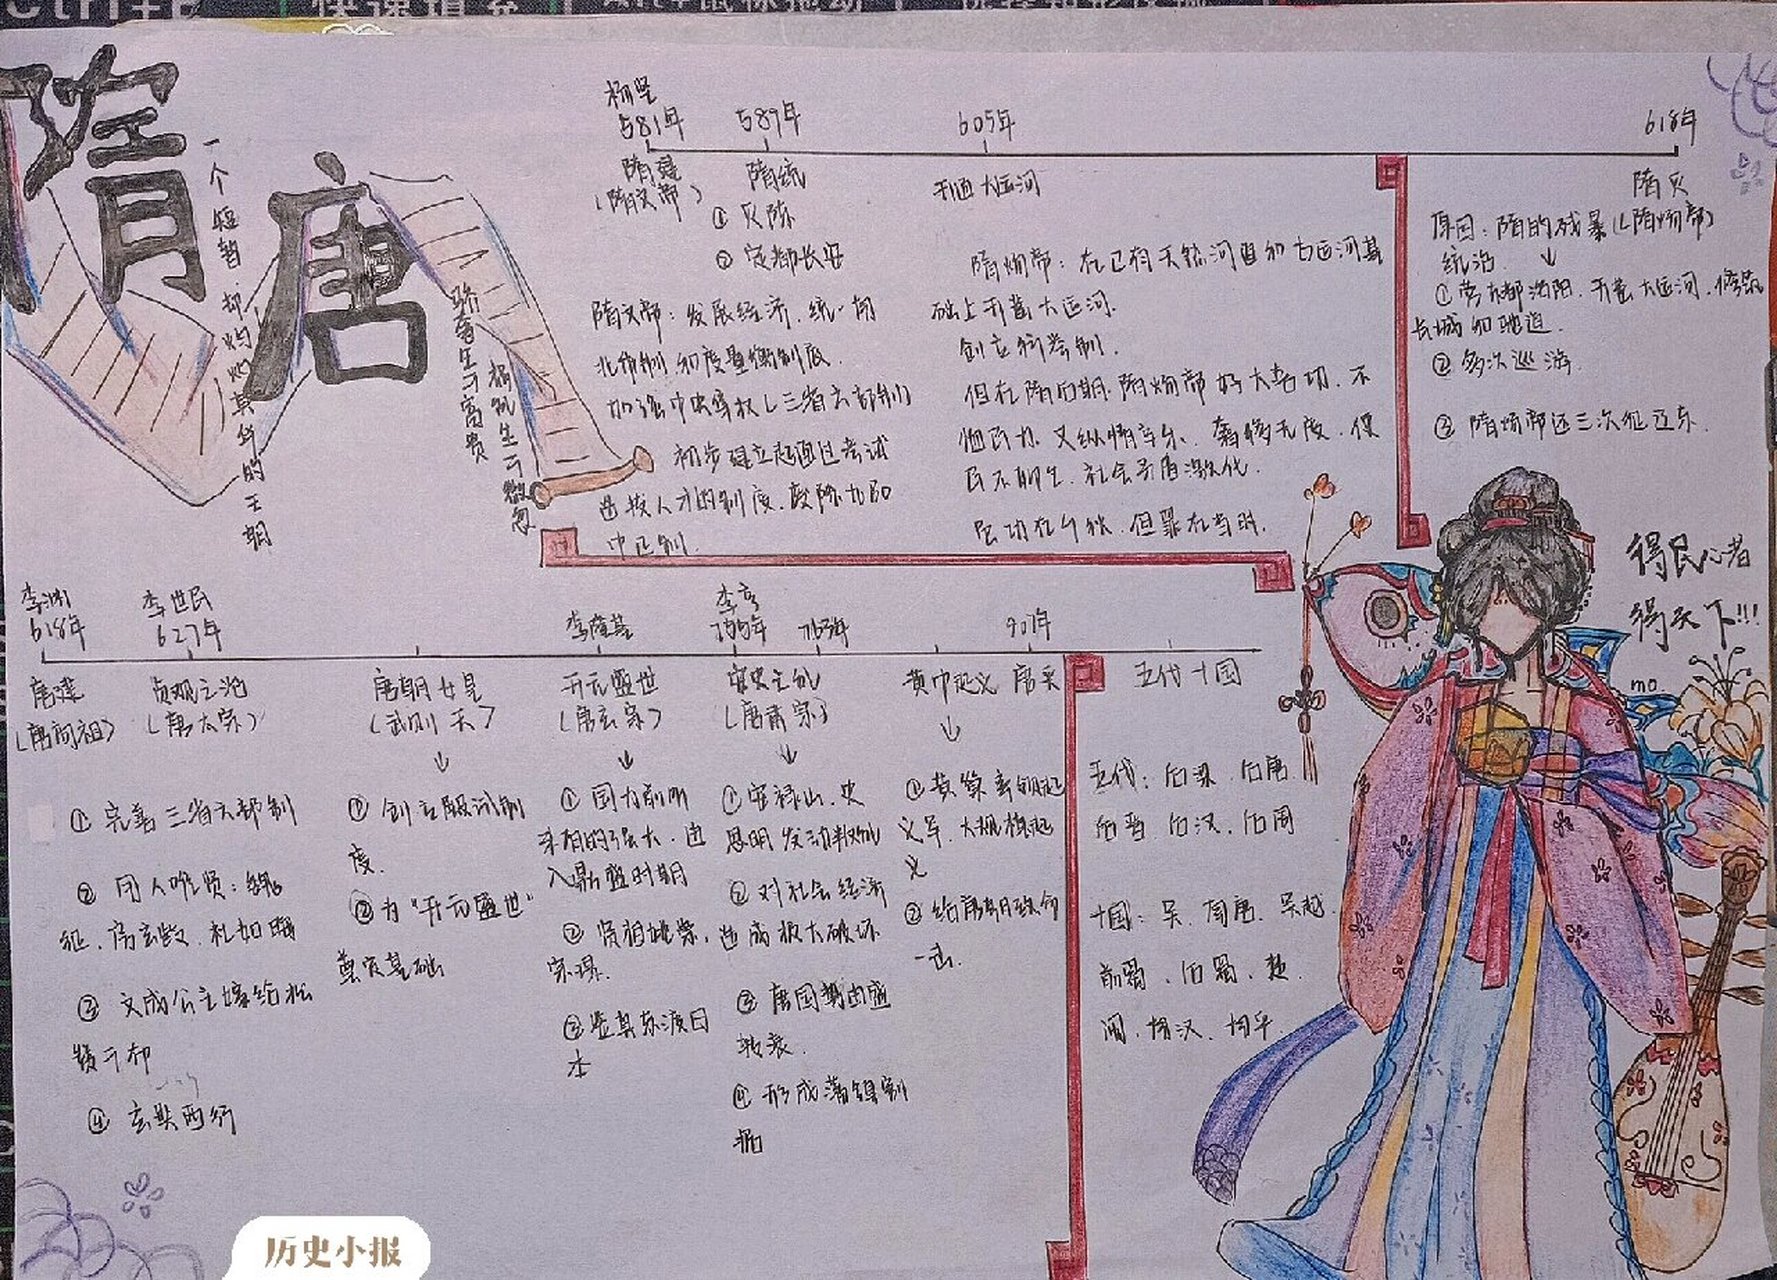 隋唐
一个短暂却灼灼其华的王朝
骄奢生于高贵
祸乱生于微忽
杨坚
581年
589年
605年
618年
隋建
(隋文帝)
隋统
①灭陈
②定都长安
开通大运河
隋灭
隋文帝：发展经济，统一南
北币制和度量衡制度.
加强中央集权(三省六部制)
初步建立起通过考试
选拔人才的制度，废除九品
中正制.
隋炀帝：在已有天然河道和古运河基
础上开凿大运河.
创立科举制.
但在隋后期，隋炀帝好大喜功，不
恤民力，又纵情音乐，奢侈无度，使
民不聊生，社会矛盾激化.
虽功在千秋，但罪在当时.
原因：隋的残暴(隋炀帝)
统治. ↓
①营东都洛阳，开凿大运河，修筑
长城和驰道.
②多次巡游.
③隋炀帝还三次征辽东.
得民心者
得天下!!!
mo
李渊
618年
李世民
627年
李隆基
李亨
755年
763年
907年
唐建
(唐高祖)
贞观之治
(唐太宗)
唐朝女皇
(武则天)
开元盛世
(唐玄宗)
安史之乱
(唐肃宗)
黄巾起义
唐末
五代十国
①完善三省六部制
②用人唯贤：魏
征、房玄龄、杜如晦
③文成公主嫁给松
赞干布
④玄奘西行
①创立殿试制
度.
②为“开元盛世”
奠定基础
①国力前所
未有的强大，进
入鼎盛时期
②贤相姚崇，
宋璟.
③鉴真东渡日
本
①安禄山、史
思明发动叛乱
②对社会经济
造成极大破坏
③唐国势由盛
转衰.
④形成藩镇割
据
①黄巢率领起
义军，大规模起
义
②给唐朝致命
一击.
五代：后梁、后唐、
后晋、后汉、后周
十国：吴、南唐、吴越、
前蜀、后蜀、楚、
闽、南汉、南平
历史小报